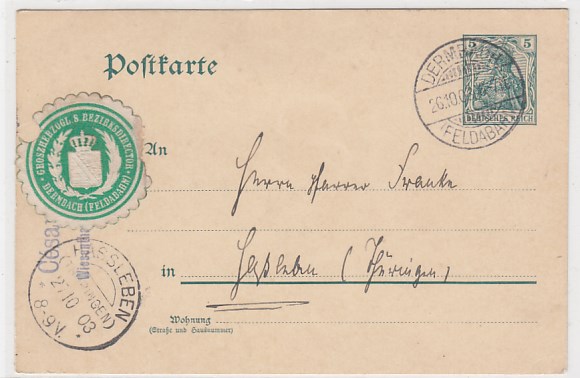 Postkarte
5 5
DEUTSCHES REICH
DERMBACH
26.10.0
(FELDABAHN)
GROSZHERZOGL. S. BEZIRKSDIRECTOR
DERMBACH (FELDABAHN)
An
Herrn Pfarrer Franke
in Haßleben (Thüringen)
Wohnung
(Straße und Hausnummer)
HASSLEBEN
(THÜRINGEN)
10 03
6-8 V.